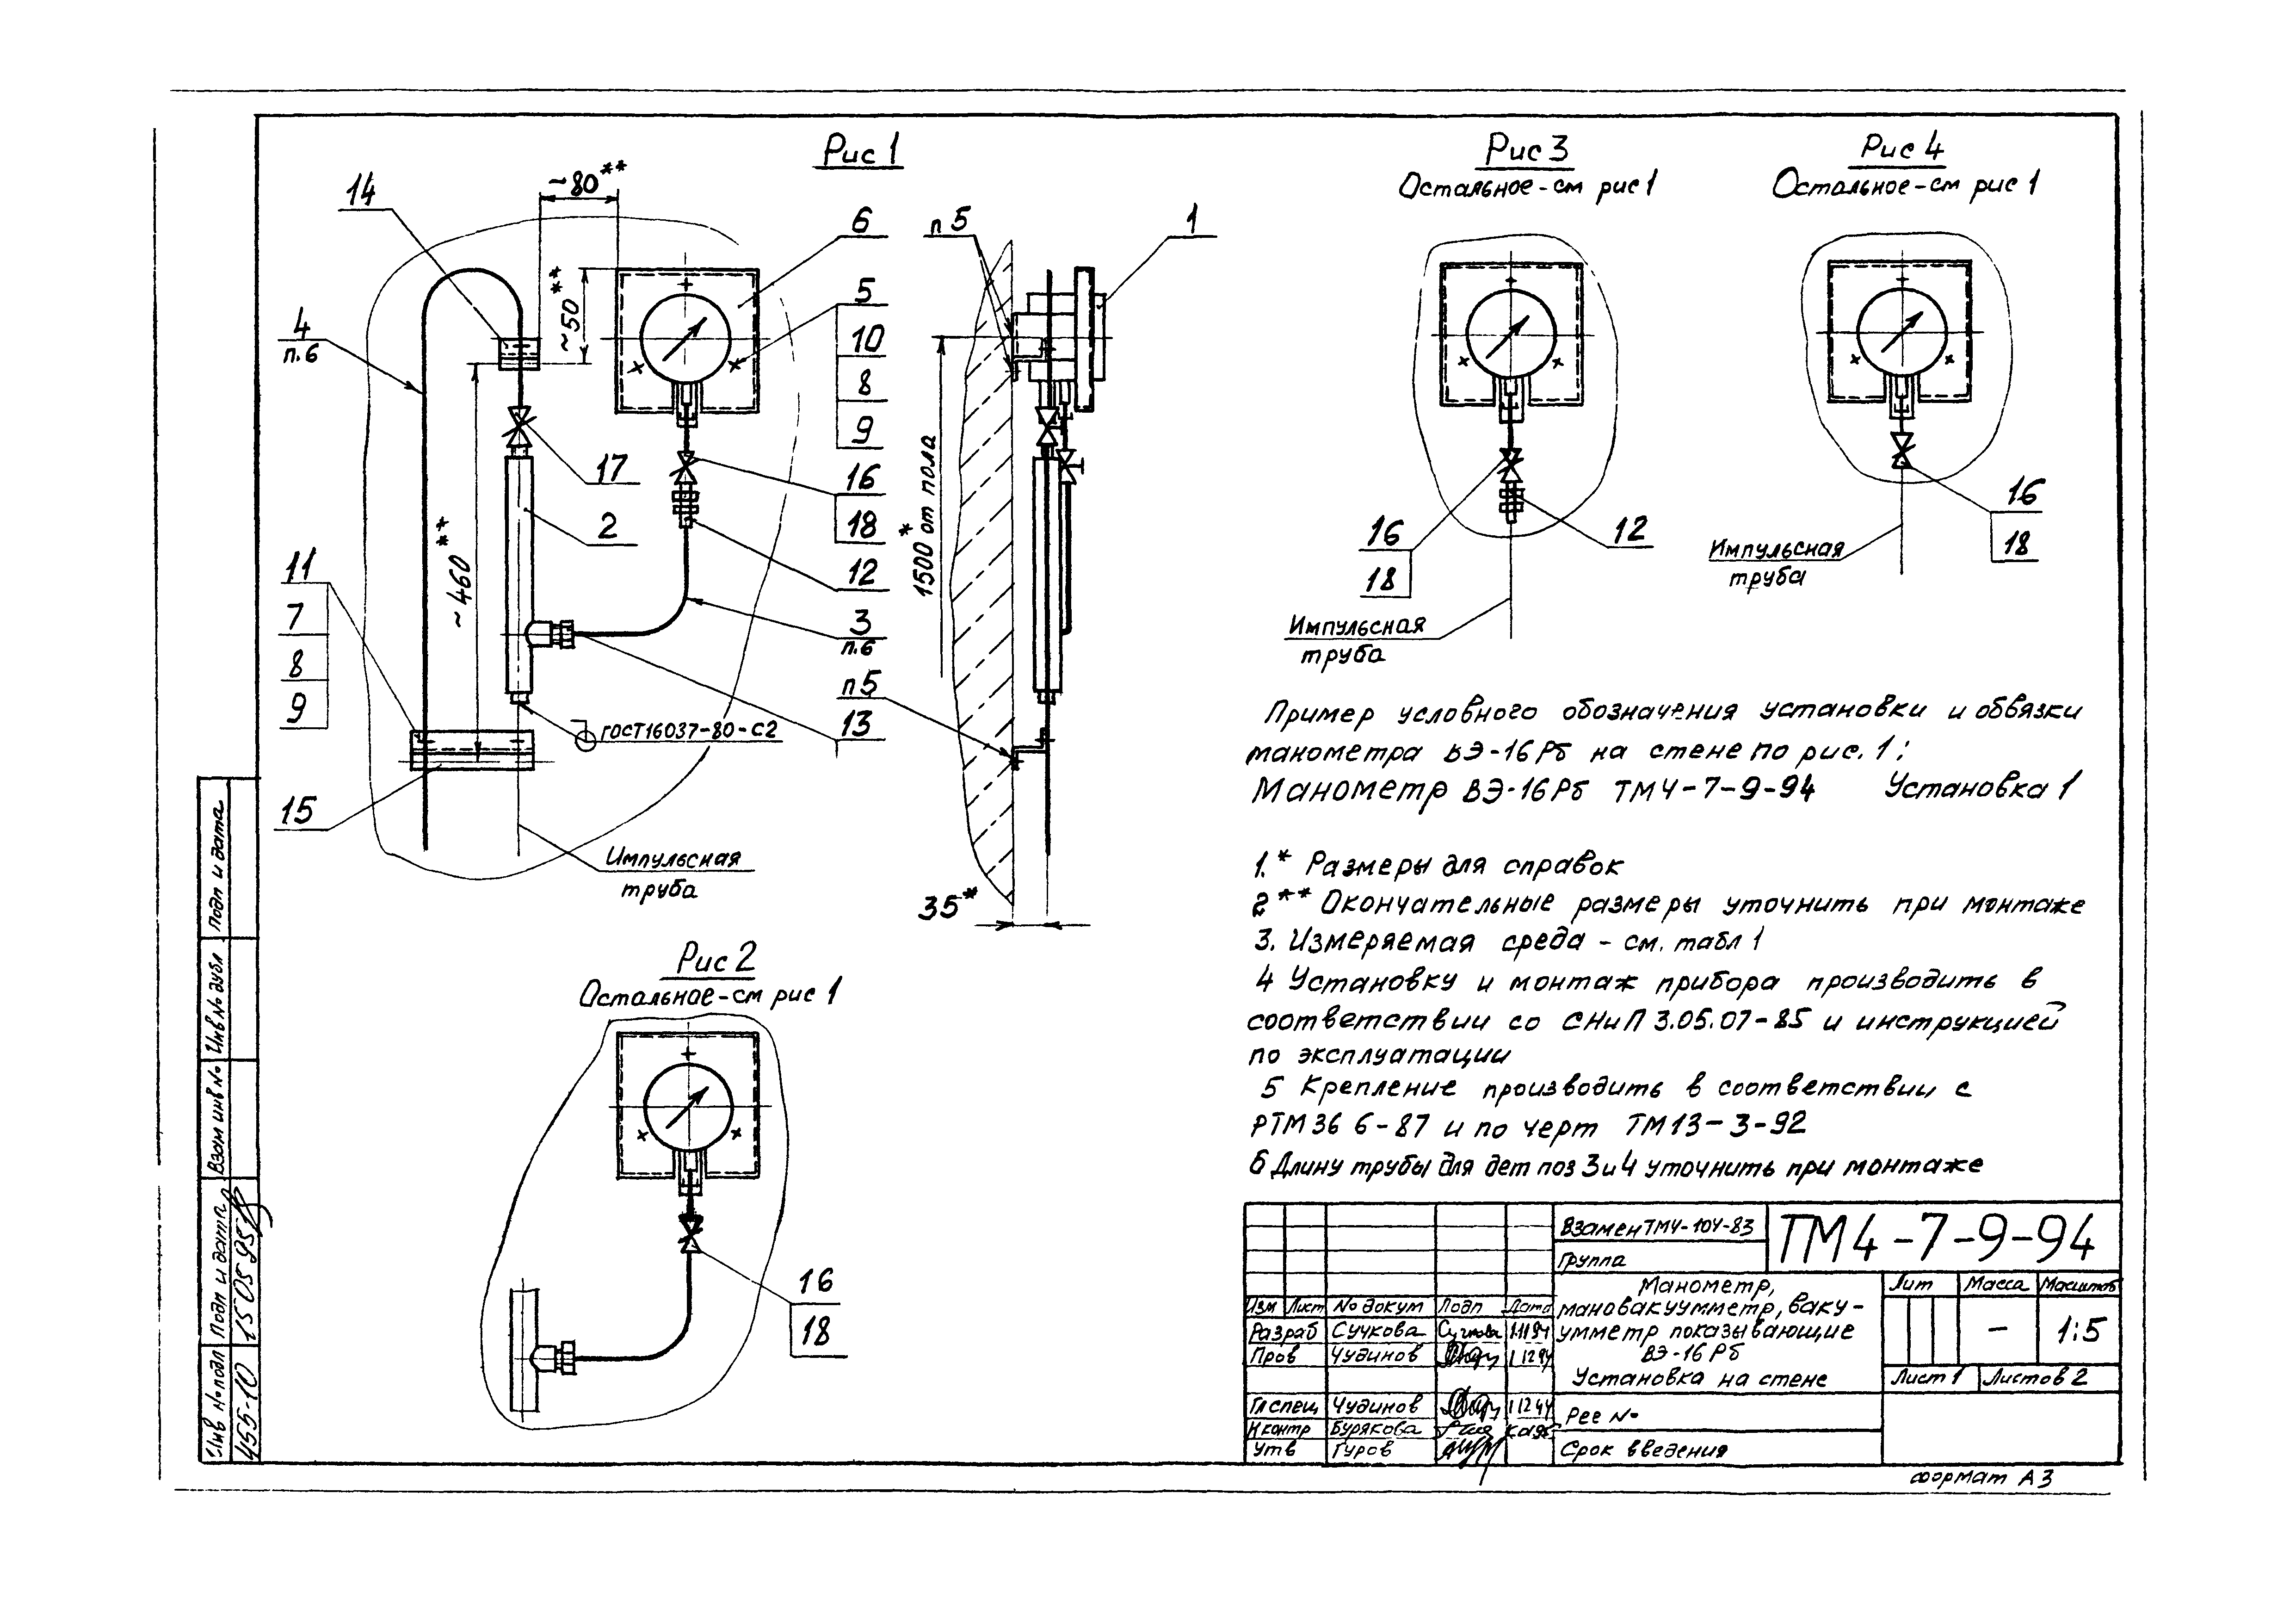 Рис 1
~80**
14
6
п 5
1
5
~50**
10
4
п.6
8
9
17
16
1500* от пола
2
18
~460**
11
12
7
3
п.6
8
п5
9
13
ГОСТ16037-80-С2
15
Импульсная
труба
35*
Рис 2
Остальное-см рис 1
16
18
Рис 3
Остальное-см рис 1
16
12
18
Импульсная
труба
Рис 4
Остальное-см рис 1
16
18
Импульсная
труба
Пример условного обозначения установки и обвязки
манометра ВЭ-16Рб на стене по рис. 1:
Манометр ВЭ-16Рб ТМ4-7-9-94 Установка 1
1.* Размеры для справок
2** Окончательные размеры уточнить при монтаже
3. Измеряемая среда - см. табл 1
4 Установку и монтаж прибора производить в
соответствии со СНиП 3.05.07-85 и инструкцией
по эксплуатации
5 Крепление производить в соответствии с
РТМ36 6-87 и по черт ТМ13-3-92
6 Длину трубы для дет поз 3и4 уточнить при монтаже
Взамен ТМ4-104-83
ТМ4-7-9-94
Группа
Манометр,
мановакуумметр, ваку-
умметр показывающие
ВЭ-16Рб
Установка на стене
Лит Масса Масштаб
– 1:5
Лист 1 Листов 2
Изм Лист № докум Подп Дата
Разраб Сучкова Сучкова 1.11.94
Пров Чудинов 1 12 94
Гл спец Чудинов 1 12 94
Н контр Бурякова
Утв Гуров
Рег №
Срок введения
формат А3
Подп и дата
Инв № дубл
Взам инв №
Подп и дата 15 05 95
Инв № подл 455-10